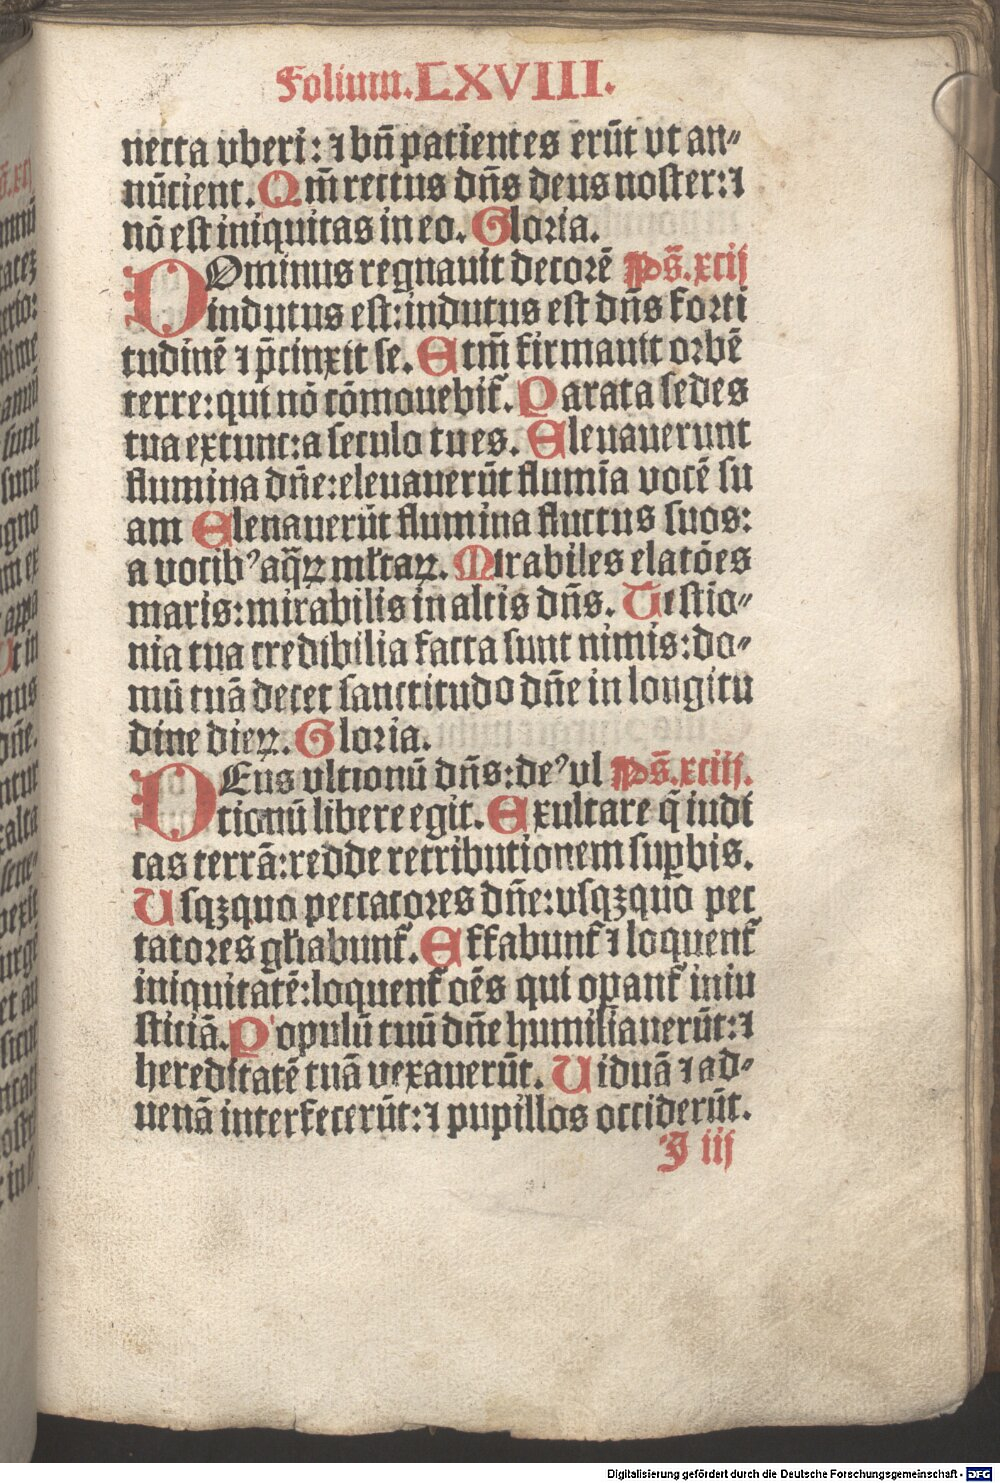 Folium.LXVIII.
necta vberi: ⁊ bn̄ patientes erūt vt an⸗
nūcient. Qm̄ rectus dn̄s deus noster: ⁊
nō est iniquitas in eo. Gloria.
DOminus regnauit decorē Ps̄.xcij
indutus est: indutus est dn̄s forti
tudinē ⁊ p̄cinxit se. Etm̄ firmauit orbē
terre: qui nō cōmouebit᷑. Parata sedes
tua ex tunc: a seculo tu es. Eleuauerunt
flumina dn̄e: eleuauerūt flumīa vocē su
am Eleuauerūt flumina fluctus suos:
a vocibꝰ aq̄ꝝ ml̄taꝝ. Mirabiles elatōes
maris: mirabilis in altis dn̄s. Testio⸗
nia tua credibilia facta sunt nimis: do⸗
mū tuā decet sanctitudo dn̄e in longitu
dine dieꝝ. Gloria.
DEus vltionū dn̄s: deꝰ vl Ps̄.xciij.
tionū libere egit. Exultare q̄ iudi
cas terrā: redde retributionem suꝑbis.
Usqꝫquo peccatores dn̄e: vsqꝫquo pec
catores gl̄iabunt᷑. Effabunt᷑ ⁊ loquent᷑
iniquitatē: loquent᷑ oēs qui oꝑant᷑ iniu
sticiā. Populū tuū dn̄e humiliauerūt: ⁊
hereditatē tuā vexauerūt. Uiduā ⁊ ad⸗
uenā interfecerūt: ⁊ pupillos occiderūt.
J iij
Digitalisierung gefördert durch die Deutsche Forschungsgemeinschaft - DFG